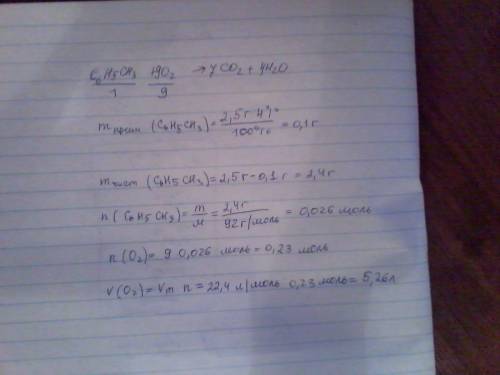 C6H5CH3 + 9O2 → 7CO2 + 4H2O
1 9
m прим (C6H5CH3) = 2,5г 4% / 100% = 0,1г
m чист (C6H5CH3) = 2,5г - 0,1г = 2,4г
n (C6H5CH3) = m/M = 2,4г / 92г/моль = 0,026 моль
n(O2) = 9 0,026 моль = 0,23 моль
V(O2) = Vm n = 22,4 л/моль 0,23 моль = 5,26л